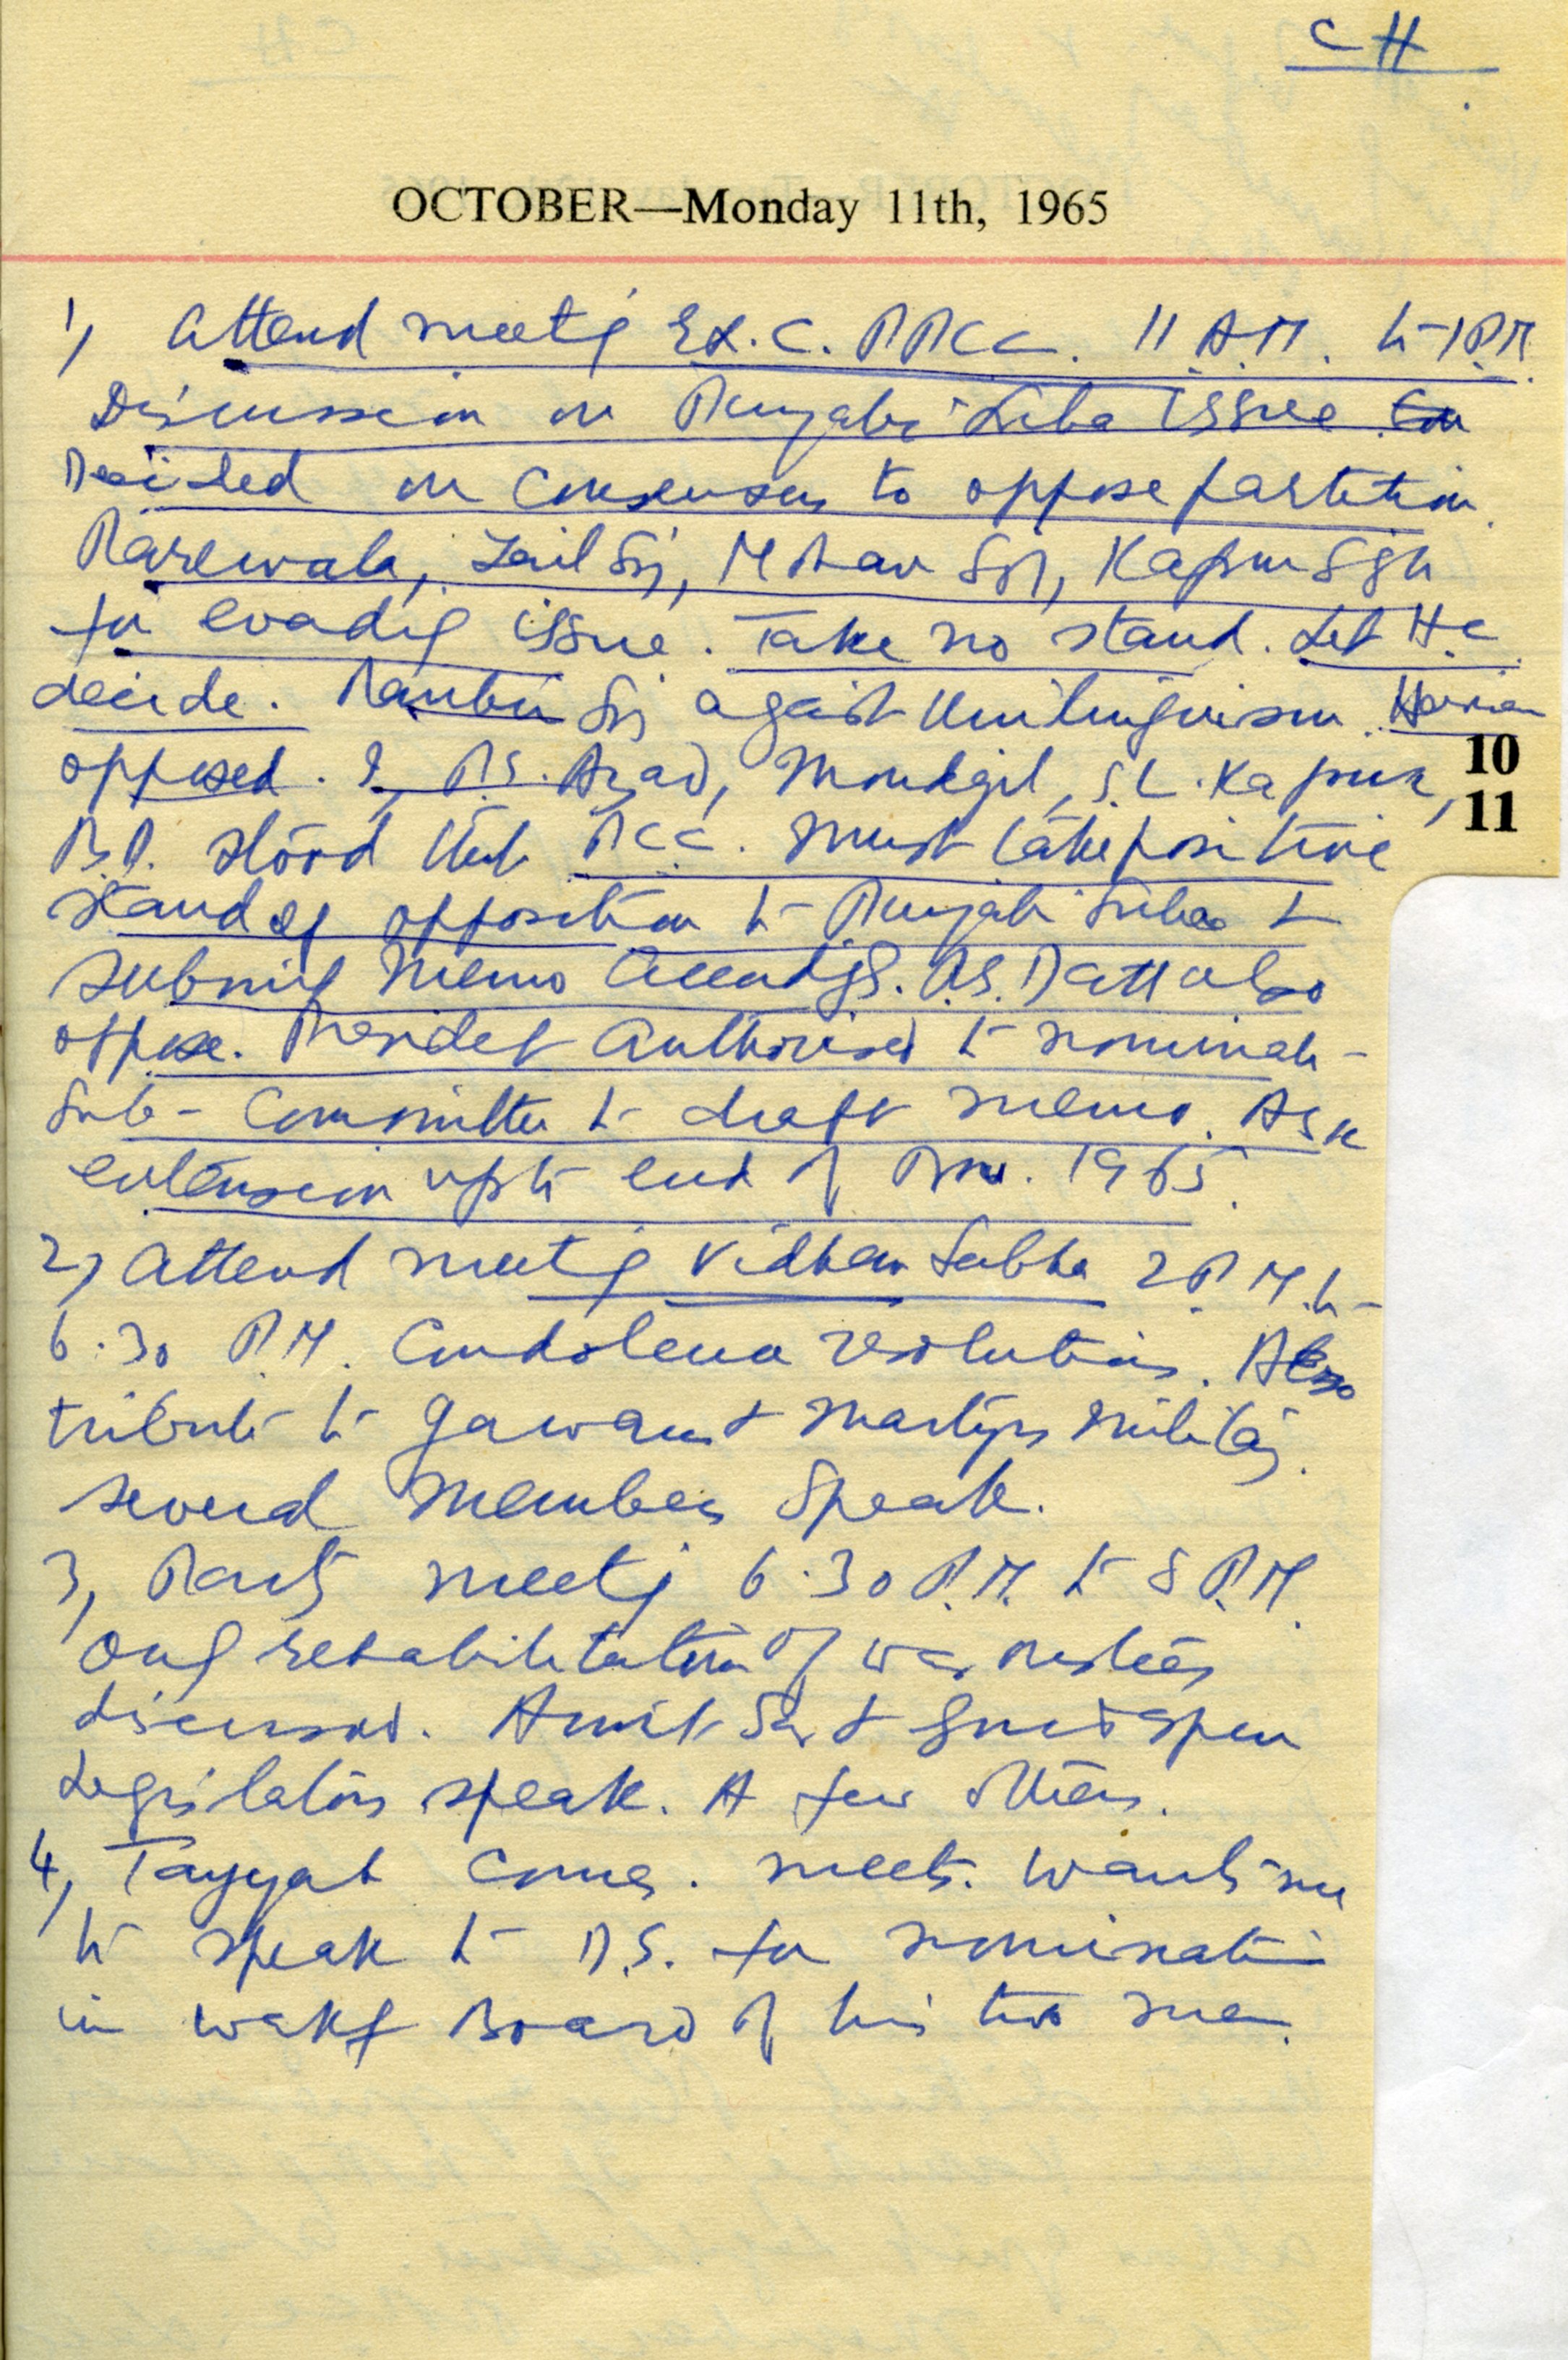 CH
OCTOBER—Monday 11th, 1965
1) Attend meetg Ex. C. PPCC. 11 A.M. to 1 P.M.
Discussion on Punjabi Suba Issue
Decided on Consensus to oppose partition.
Rarewala, Zail Sg, Mohan Sg, Kapur Sgh
for evadig issue. Take no stand. Let H.C.
decide. Ranbir Sg against Unilinguism.
opposed. I, P.S. Azad, Moudgil, S.L. Kapur,
B.D. stood that PCC. must take positive
stand of opposition to Punjabi Suba &
submit memo accordgly. Datt also
oppose. President authorised to nominate
Sub-Committee to draft memo. Ask
extension upto end of Nov. 1965.
2) Attend meetig Vidhan Sabha 2 P.M. to
6.30 P.M. Condolence resolutions. Also
tribute to Jawans & Martyrs military.
several Members Speak.
3, Party meetg 6.30 P.M. to 8 P.M.
Only rehabilitation of war
discussed. Amrit Sar & Gurdaspur
Legislators speak. A few others.
4, Tayyab comes. meets. Wants me
to speak to D.S. for nomination
in Wakf Board of his two men.
10
11